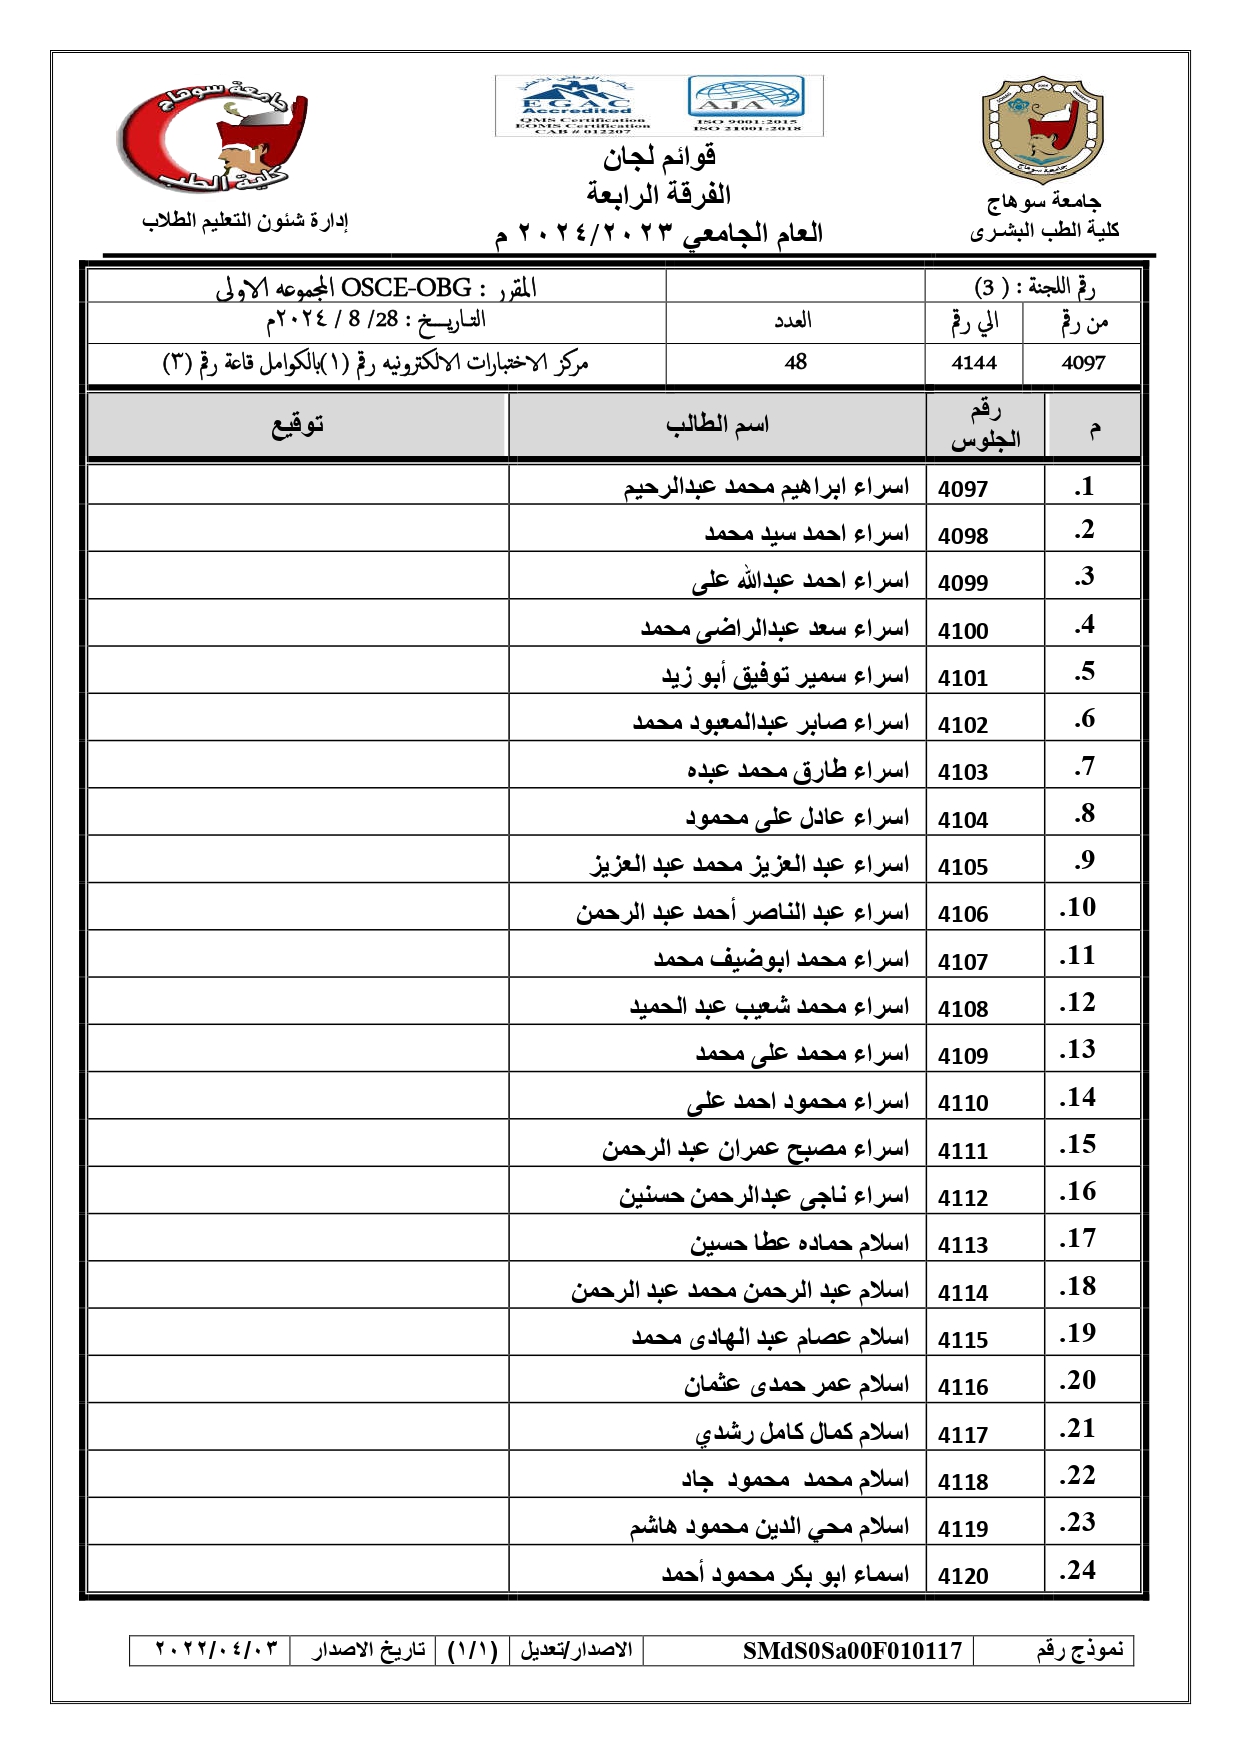 جامعة سوهاج
كلية الطب
إدارة شئون التعليم الطلاب
EGAC
Accredited
QMS Certification
EOMS Certification
CAB # 012207
AJA
ISO 9001:2015
ISO 21001:2018
قوائم لجان
الفرقة الرابعة
العام الجامعي ٢٠٢٤/٢٠٢٣ م
جامعة سوهاج
جامعة سوهاج
كلية الطب البشرى
رقم اللجنة : ( 3) المقرر : OSCE-OBG المجموعه الاولى
من رقم الي رقم العدد التاريـــخ : 28/ 8 / ٢٠٢٤م
4097 4144 48 مركز الاختبارات الالكترونيه رقم (١)بالكوامل قاعة رقم (٣)
م رقم الجلوس اسم الطالب توقيع
1. 4097 اسراء ابراهيم محمد عبدالرحيم
2. 4098 اسراء احمد سيد محمد
3. 4099 اسراء احمد عبدالله على
4. 4100 اسراء سعد عبدالراضى محمد
5. 4101 اسراء سمير توفيق أبو زيد
6. 4102 اسراء صابر عبدالمعبود محمد
7. 4103 اسراء طارق محمد عبده
8. 4104 اسراء عادل على محمود
9. 4105 اسراء عبد العزيز محمد عبد العزيز
10. 4106 اسراء عبد الناصر أحمد عبد الرحمن
11. 4107 اسراء محمد ابوضيف محمد
12. 4108 اسراء محمد شعيب عبد الحميد
13. 4109 اسراء محمد على محمد
14. 4110 اسراء محمود احمد على
15. 4111 اسراء مصبح عمران عبد الرحمن
16. 4112 اسراء ناجى عبدالرحمن حسنين
17. 4113 اسلام حماده عطا حسين
18. 4114 اسلام عبد الرحمن محمد عبد الرحمن
19. 4115 اسلام عصام عبد الهادى محمد
20. 4116 اسلام عمر حمدى عثمان
21. 4117 اسلام كمال كامل رشدي
22. 4118 اسلام محمد محمود جاد
23. 4119 اسلام محي الدين محمود هاشم
24. 4120 اسماء ابو بكر محمود أحمد
نموذج رقم SMdS0Sa00F010117 الاصدار/تعديل (١/١) تاريخ الاصدار ٢٠٢٢/٠٤/٠٣